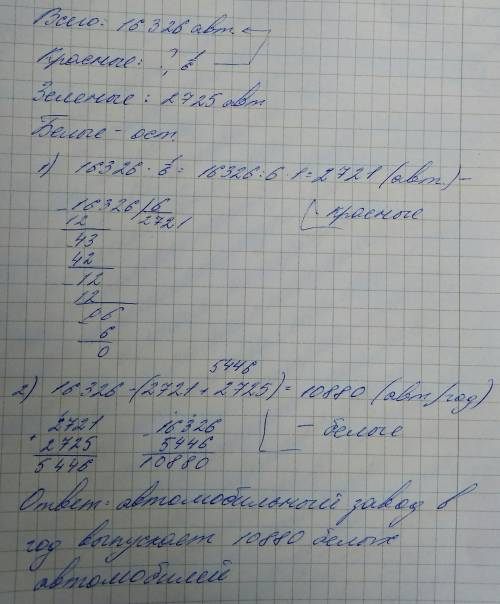 Всего: 16326 авт.
Красные: ?, 1/6
Зеленые: 2725 авт
Белые - ост.
1) 16326 · 1/6 = 16326 : 6 · 1 = 2721 (авт.) -
красные
16326 | 6
12 2721
43
42
12
12
06
6
0
5446
2) 16326 - (2721 + 2725) = 10880 (авт/год)
- белые
2721 16326
+ 2725 - 5446
5446 10880
Ответ: автомобильный завод в
год выпускает 10880 белых
автомобилей